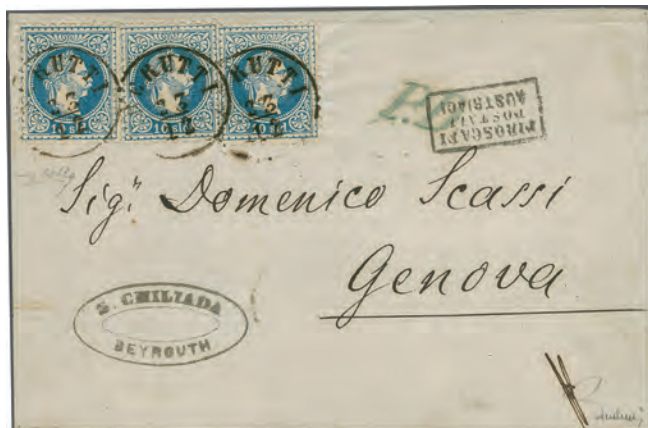 BERUTTI
23
12
BERUTTI
23
12
BERUTTI
23
12
10
10
P.D.
PIROSCAFI
POSTALI
AUSTRIACI
Sigr. Domenico Scassi
Genova
S. CHILIADA
BEYROUTH